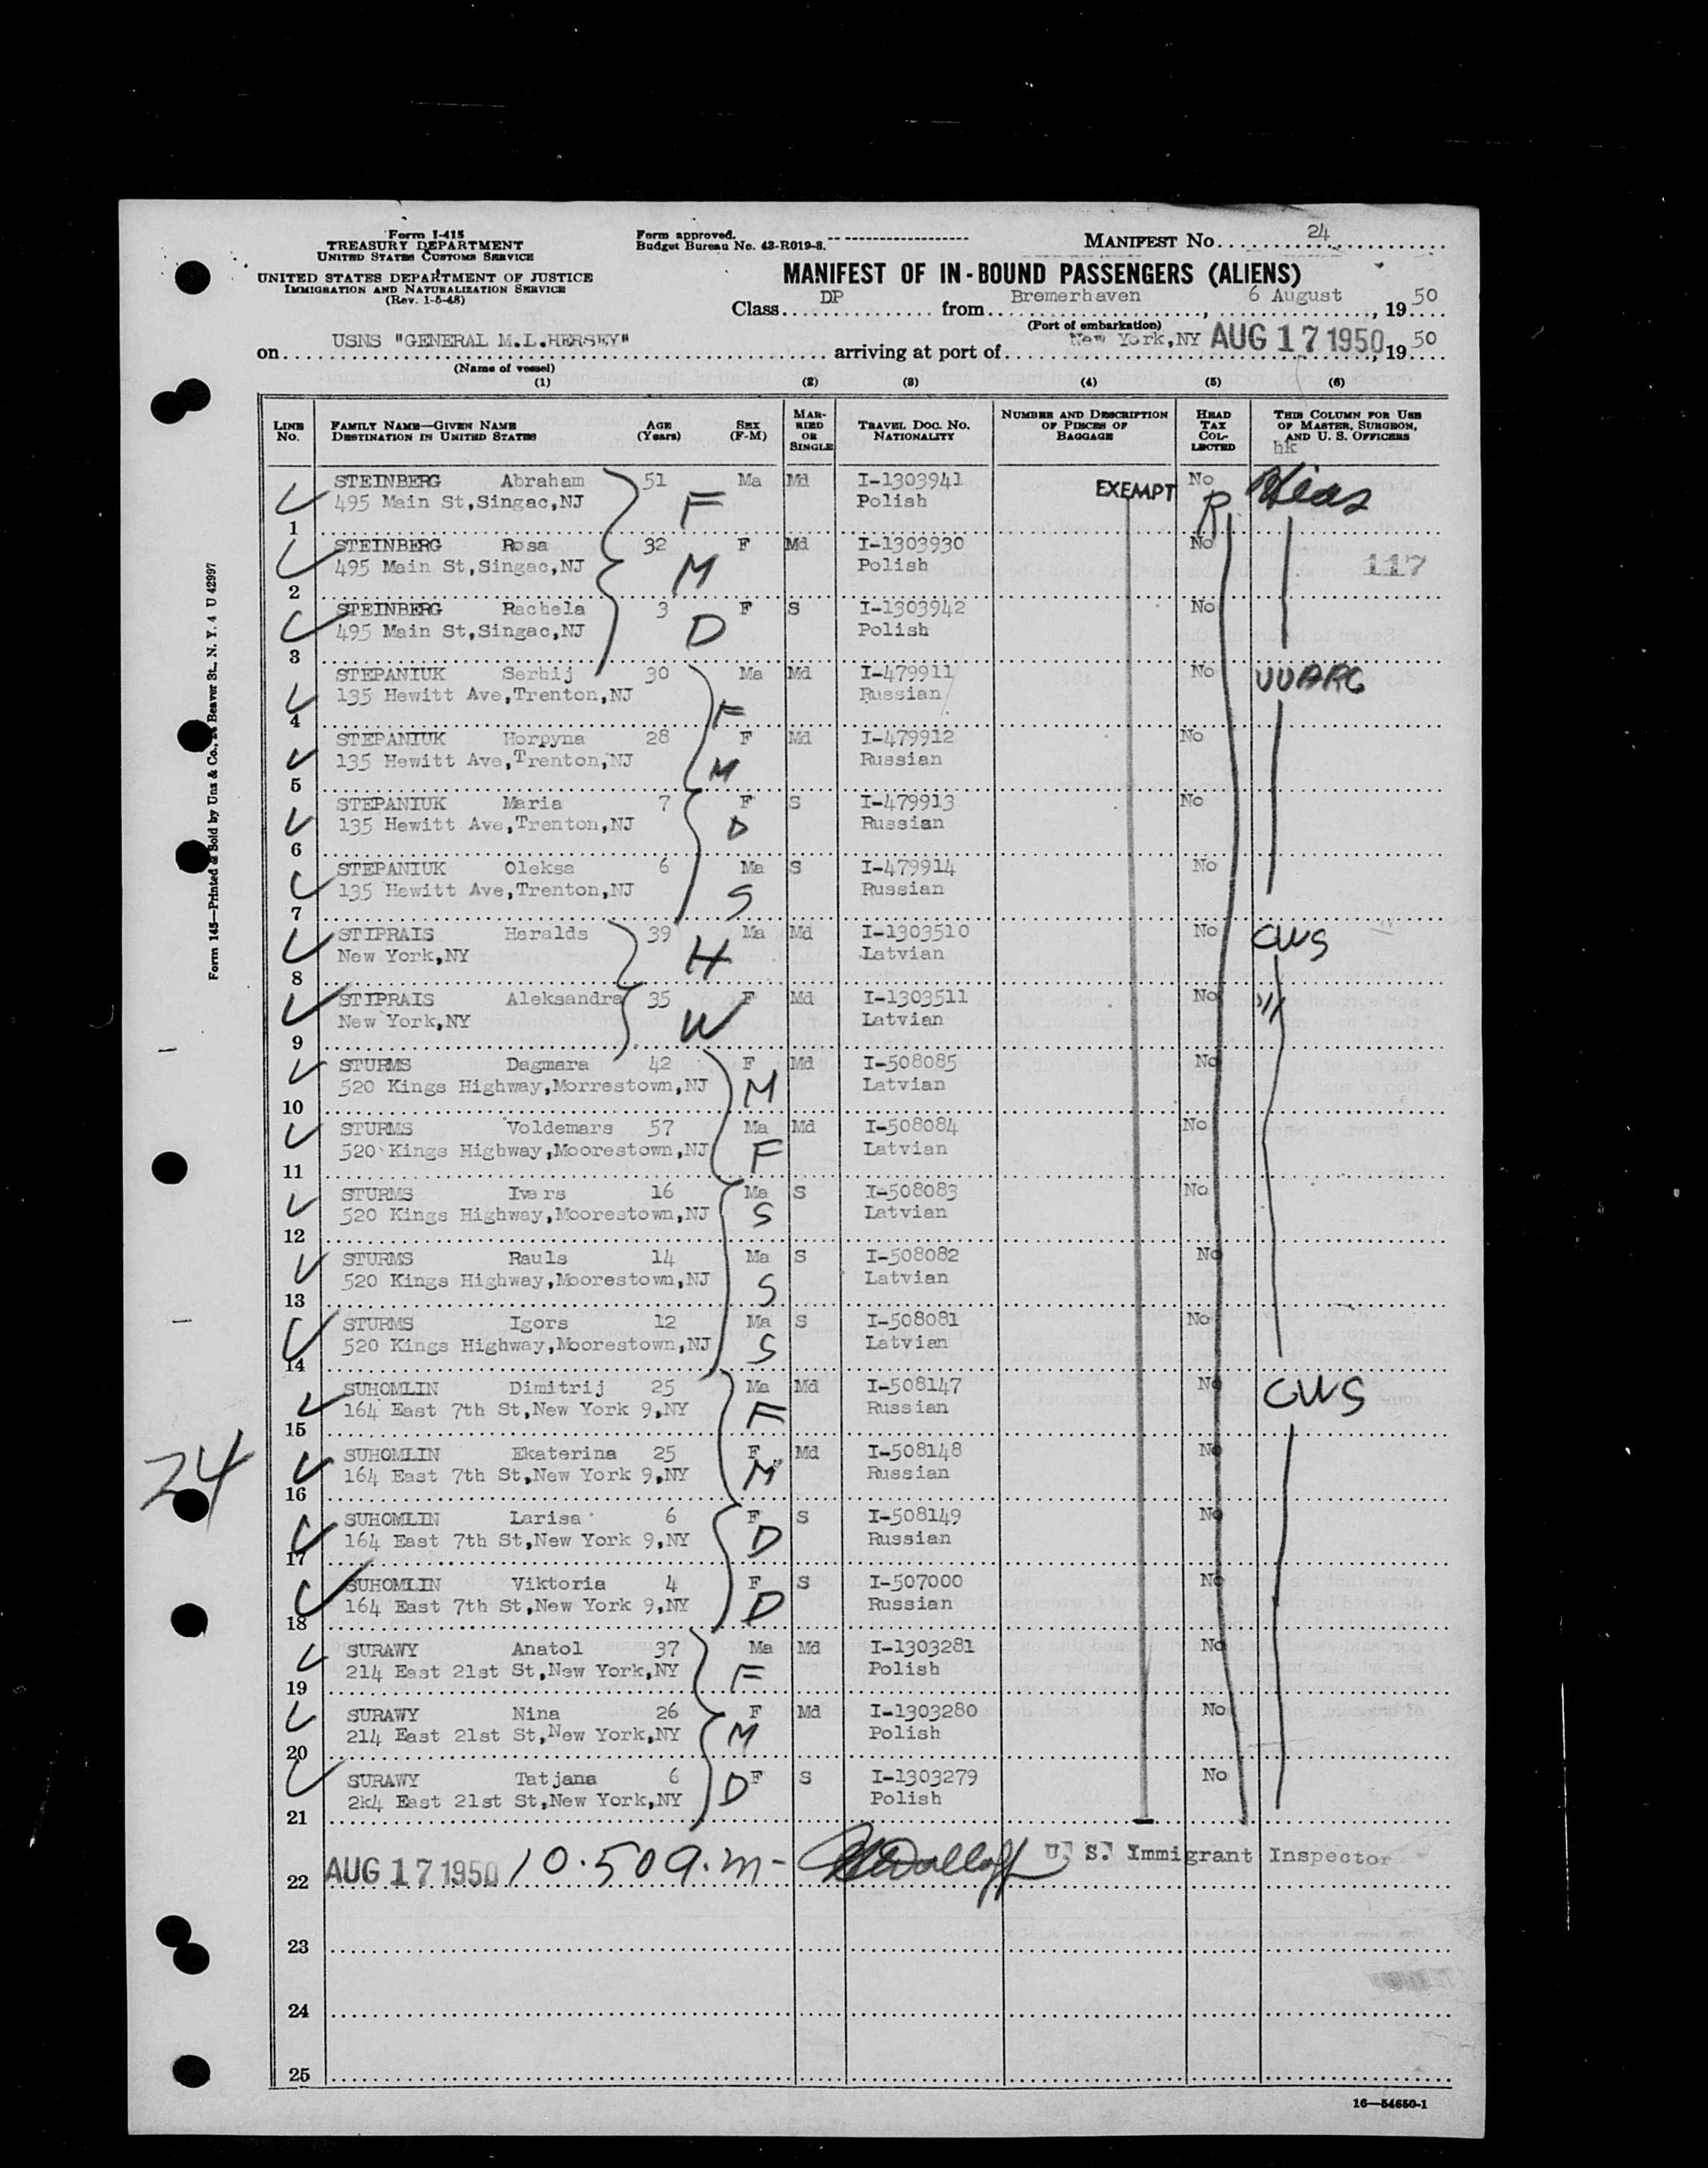 Form I-415
TREASURY DEPARTMENT
UNITED STATES CUSTOMS SERVICE
UNITED STATES DEPARTMENT OF JUSTICE
IMMIGRATION AND NATURALIZATION SERVICE
(Rev. 1-5-48)
Form approved.
Budget Bureau No. 43-R019-8.
MANIFEST No. 24
MANIFEST OF IN-BOUND PASSENGERS (ALIENS)
Class DP from Bremerhaven, 6 August, 1950
(Port of embarkation)
on USNS "GENERAL M.L.HERSEY" arriving at port of New York,NY AUG 17 1950, 1950
(Name of vessel)
(1) (2) (3) (4) (5) (6)
LINE No. FAMILY NAME—GIVEN NAME DESTINATION IN UNITED STATES AGE (Years) SEX (F-M) MARRIED OR SINGLE TRAVEL DOC. NO. NATIONALITY NUMBER AND DESCRIPTION OF PIECES OF BAGGAGE HEAD TAX COLLECTED THIS COLUMN FOR USE OF MASTER, SURGEON, AND U. S. OFFICERS
hk
STEINBERG Abraham 51 Ma Md I-1303941 EXEMPT No Hias
1 495 Main St,Singac,NJ F Polish R
STEINBERG Rosa 32 F Md I-1303930 No
2 495 Main St,Singac,NJ M Polish 117
STEINBERG Rachela 3 F S I-1303942 No
3 495 Main St,Singac,NJ D Polish
STEPANIUK Serhij 30 Ma Md I-479911 No UUARC
4 135 Hewitt Ave,Trenton,NJ F Russian
STEPANIUK Horpyna 28 F Md I-479912 No
5 135 Hewitt Ave,Trenton,NJ M Russian
STEPANIUK Maria 7 F S I-479913 No
6 135 Hewitt Ave,Trenton,NJ D Russian
STEPANIUK Oleksa 6 Ma S I-479914 No
7 135 Hewitt Ave,Trenton,NJ S Russian
STIPRAIS Heralds 39 Ma Md I-1303510 No CWS
8 New York,NY H Latvian
STIPRAIS Aleksandra 35 F Md I-1303511 No
9 New York,NY W Latvian
STURMS Dagmara 42 F Md I-508085 No
10 520 Kings Highway,Morrestown,NJ M Latvian
STURMS Voldemars 57 Ma Md I-508084 No
11 520 Kings Highway,Moorestown,NJ F Latvian
STURMS Ivars 16 Ma S I-508083 No
12 520 Kings Highway,Moorestown,NJ S Latvian
STURMS Rauls 14 Ma S I-508082 No
13 520 Kings Highway,Moorestown,NJ S Latvian
STURMS Igors 12 Ma S I-508081 No
14 520 Kings Highway,Moorestown,NJ S Latvian
SUHOMLIN Dimitrij 25 Ma Md I-508147 No CWS
15 164 East 7th St,New York 9,NY F Russian
SUHOMLIN Ekaterina 25 F Md I-508148 No
16 164 East 7th St,New York 9,NY M Russian
24
SUHOMLIN Larisa 6 F S I-508149 No
17 164 East 7th St,New York 9,NY D Russian
SUHOMLIN Viktoria 4 F S I-507000 No
18 164 East 7th St,New York 9,NY D Russian
SURAWY Anatol 37 Ma Md I-1303281 No
19 214 East 21st St,New York,NY F Polish
SURAWY Nina 26 F Md I-1303280 No
20 214 East 21st St,New York,NY M Polish
SURAWY Tatjana 6 F S I-1303279 No
21 2k4 East 21st St,New York,NY D Polish
22 AUG 17 1950 10.50 a.m- U. S. Immigrant Inspector
23
24
25
16—54650-1